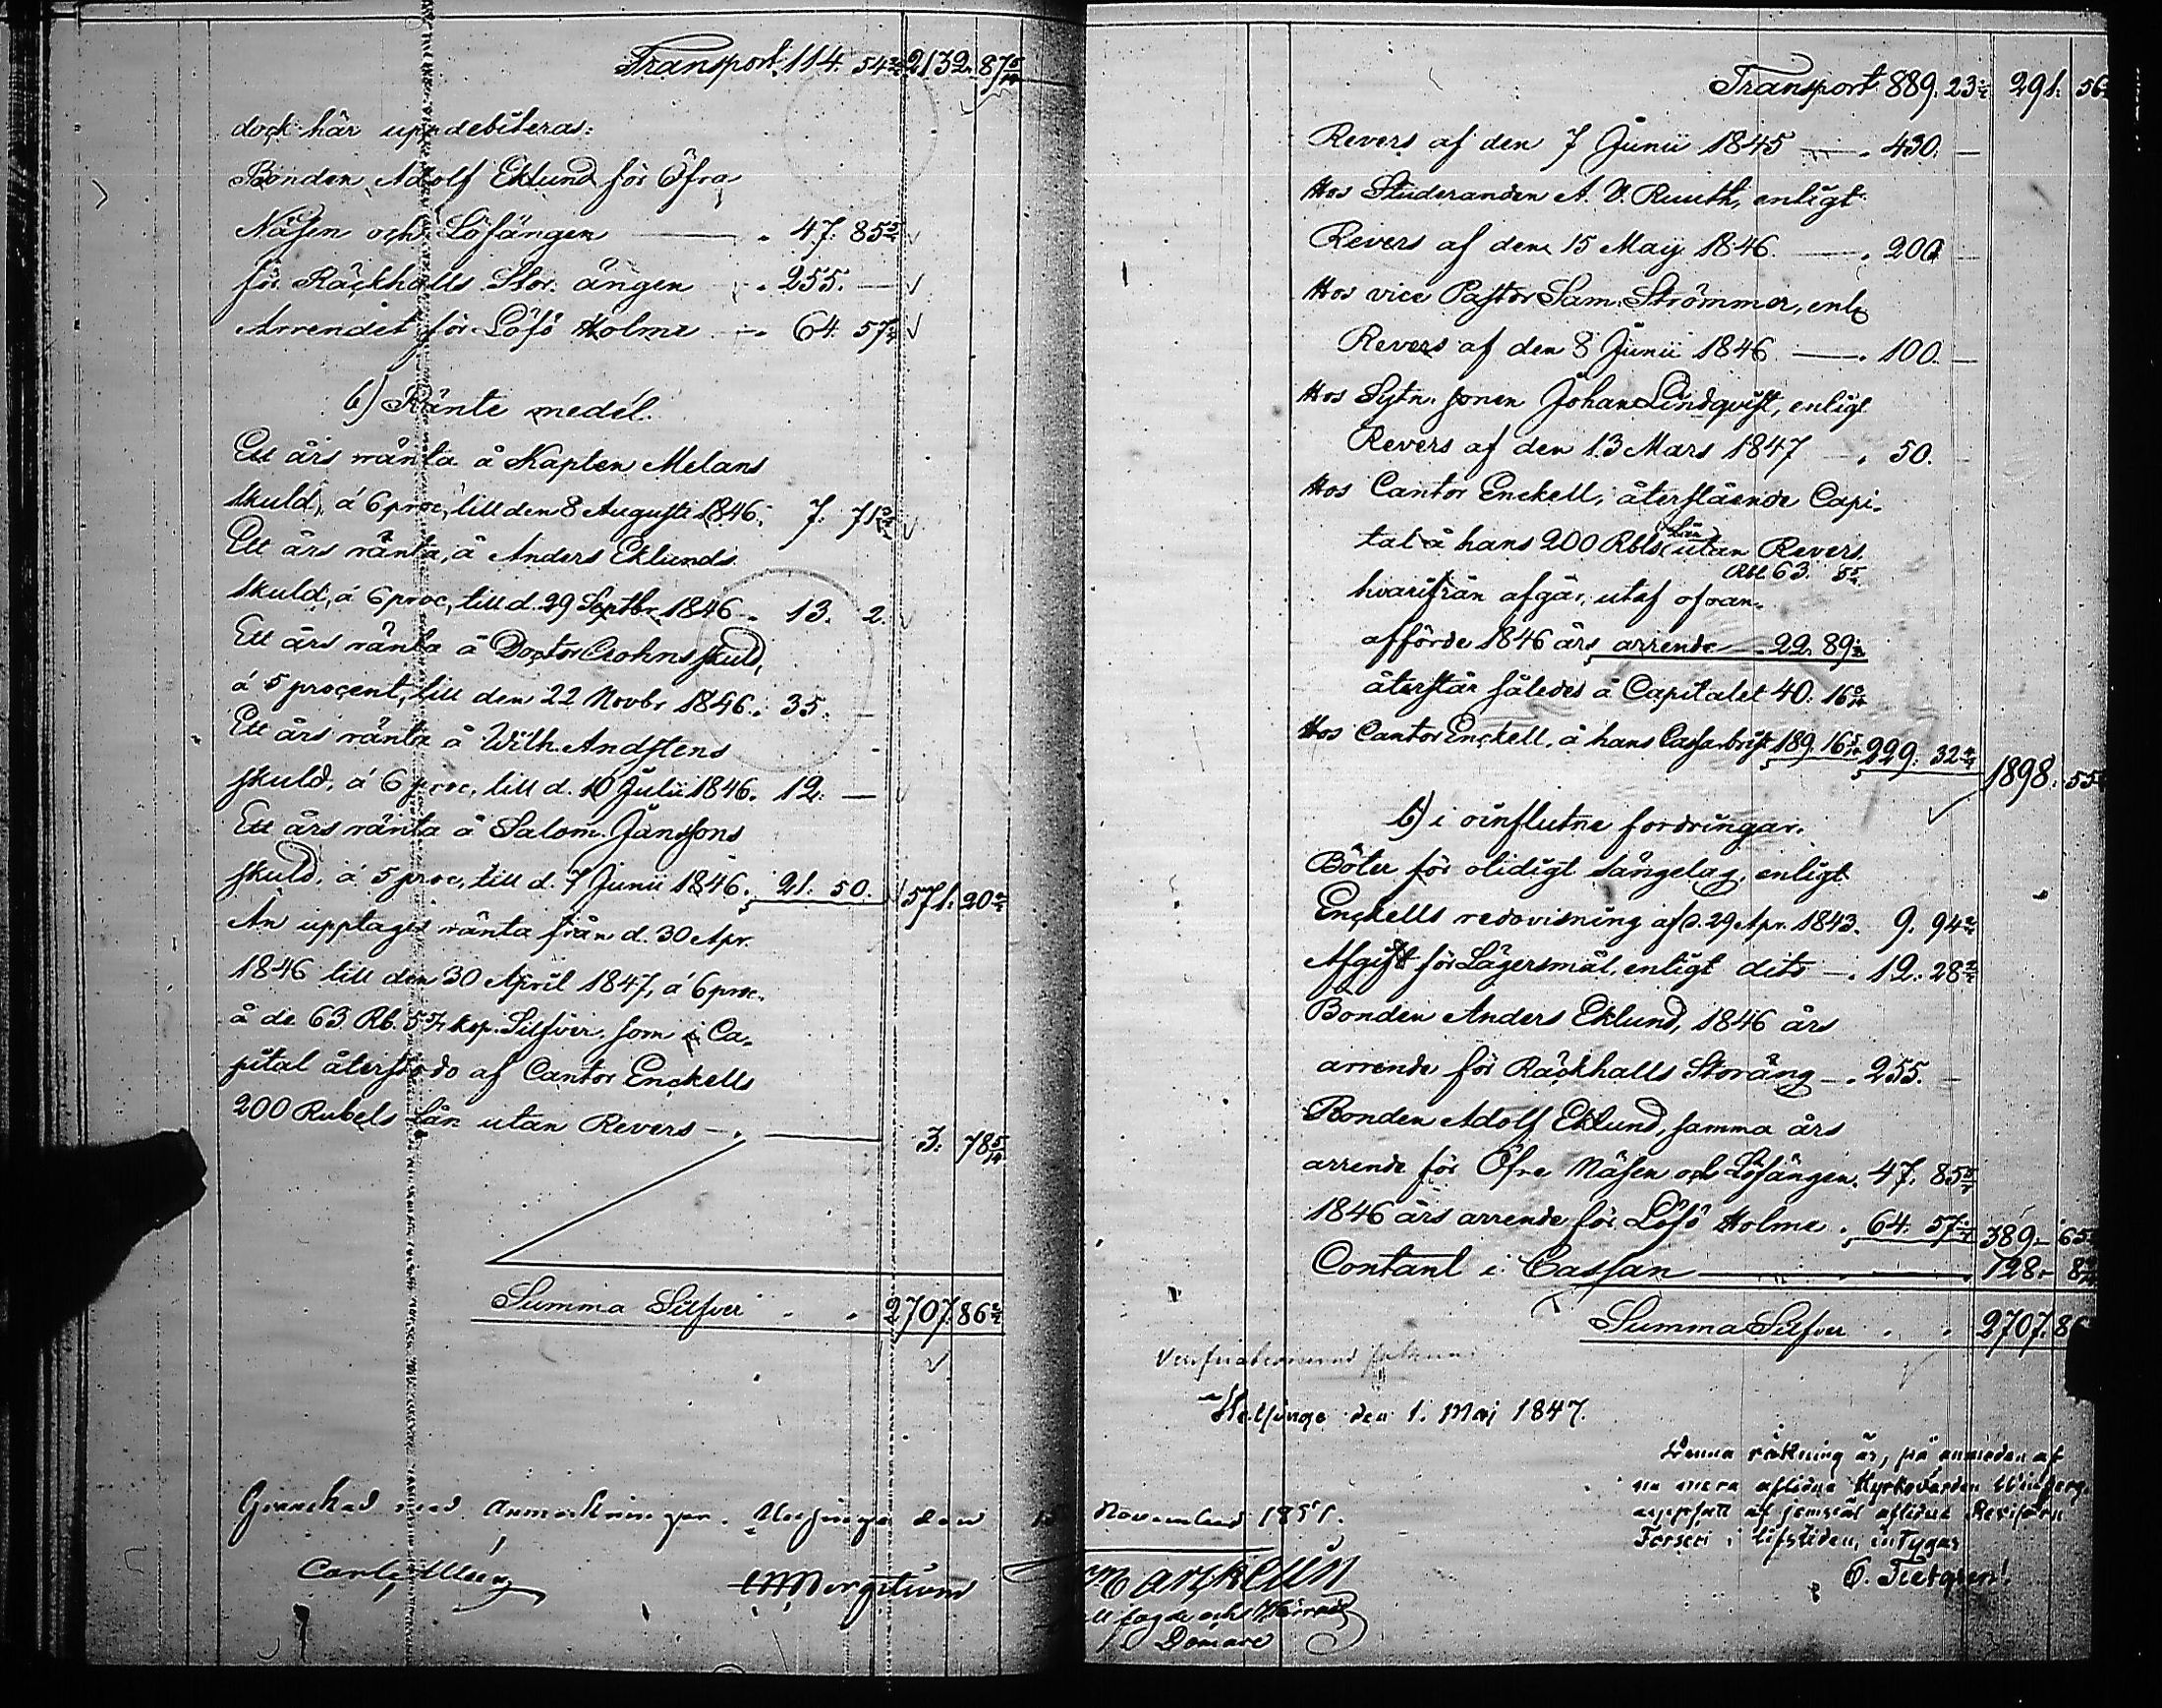 Transport. 114. 54 2/7 2132. 87 5/14
dock här uppdebiteras:
Bonden Adolf Eklund för Öfra
Näsen och Löfängen — 47. 85 5/7
för Räckhalls Stor ängen — 255. —
Arrendet för Löfö Holme — 64. 57 1/7
b) Ränte medel.
Ett års ränta å Kapten Melans
skuld, á 6 proc, till den 8 Augusti 1846. 7. 71
Ett års ränta, å Anders Eklunds
skuld, á 6 proc, till d. 29 Septbr 1846. 13. 2.
Ett års ränta å Doctor Crohns skuld,
á 5 procent, till den 22 Novbr 1846. 35. —
Ett års ränta å Wilh. Andstens
skuld, á 6 proc, till d. 10 Julii 1846. 12. —
Ett års ränta å Salom. Janssons
skuld, á 5 proc, till d. 7 Junii 1846. 21. 50. 571. 20
Än upptages ränta från d. 30 Apr.
1846 till den 30 April 1847, á 6 proc.
å de 63 Rb. 5 kop. Silfver, som i Ca-
pital återstodo af Cantor Enckells
200 Rubels Lån utan Revers — 3. 78 5/14
Summa Silfver 2707. 86
Granskad med anmärkningar. Helsinge den
Carl
Transport 889. 23 291. 56
Revers af den 7 Junii 1845 — 430. —
Hos Studeranden A. V. Ruuth, enligt
Revers af den 15 May 1846. — 200 —
Hos vice Pastor Sam. Strömmer, enl.
Revers af den 8 Junii 1846 — 100. —
Hos Sytn. sonen Johan Lindqvist, enligt
Revers af den 13 Mars 1847 — 50. —
Hos Cantor Enckell, återstående Capi-
tal å hans 200 Rbls Lån utan Revers.
Rbl. 63. 5 5/7
hvarifrån afgår, utaf ofvan-
afförde 1846 års arrende — 22. 89
återstår således å Capitalet 40. 16
Hos Cantor Enckell, å hans Cassabrist 189. 16 229. 32 1898. 55
b) i oinflutne fordringar.
Böter för olidigt sångelag, enligt
Enckells redovisning af d. 29 Apr. 1843. 9. 94 2/7
Afgift för Lägersmål, enligt dito — 12. 28
Bonden Anders Eklund, 1846 års
arrende för Räckhalls Storäng — 255. —
Bonden Adolf Eklund, samma års
arrende för Öfre Näsen och Löfängen. 47. 85 5/7
1846 års arrende för Löfö Holme. 64. 57 1/7 389. 65
Contant i Cassan — 128. 8
Summa Silfver 2707. 86
Helsinge den 1. Maj 1847.
Denna räkning är, på anmodan af
nu mera aflidne Kyrkovärden Winberg
uppsatt af jemväl aflidne Revisorn
Forseen i lifstiden, intygar
November 1851.
Domare